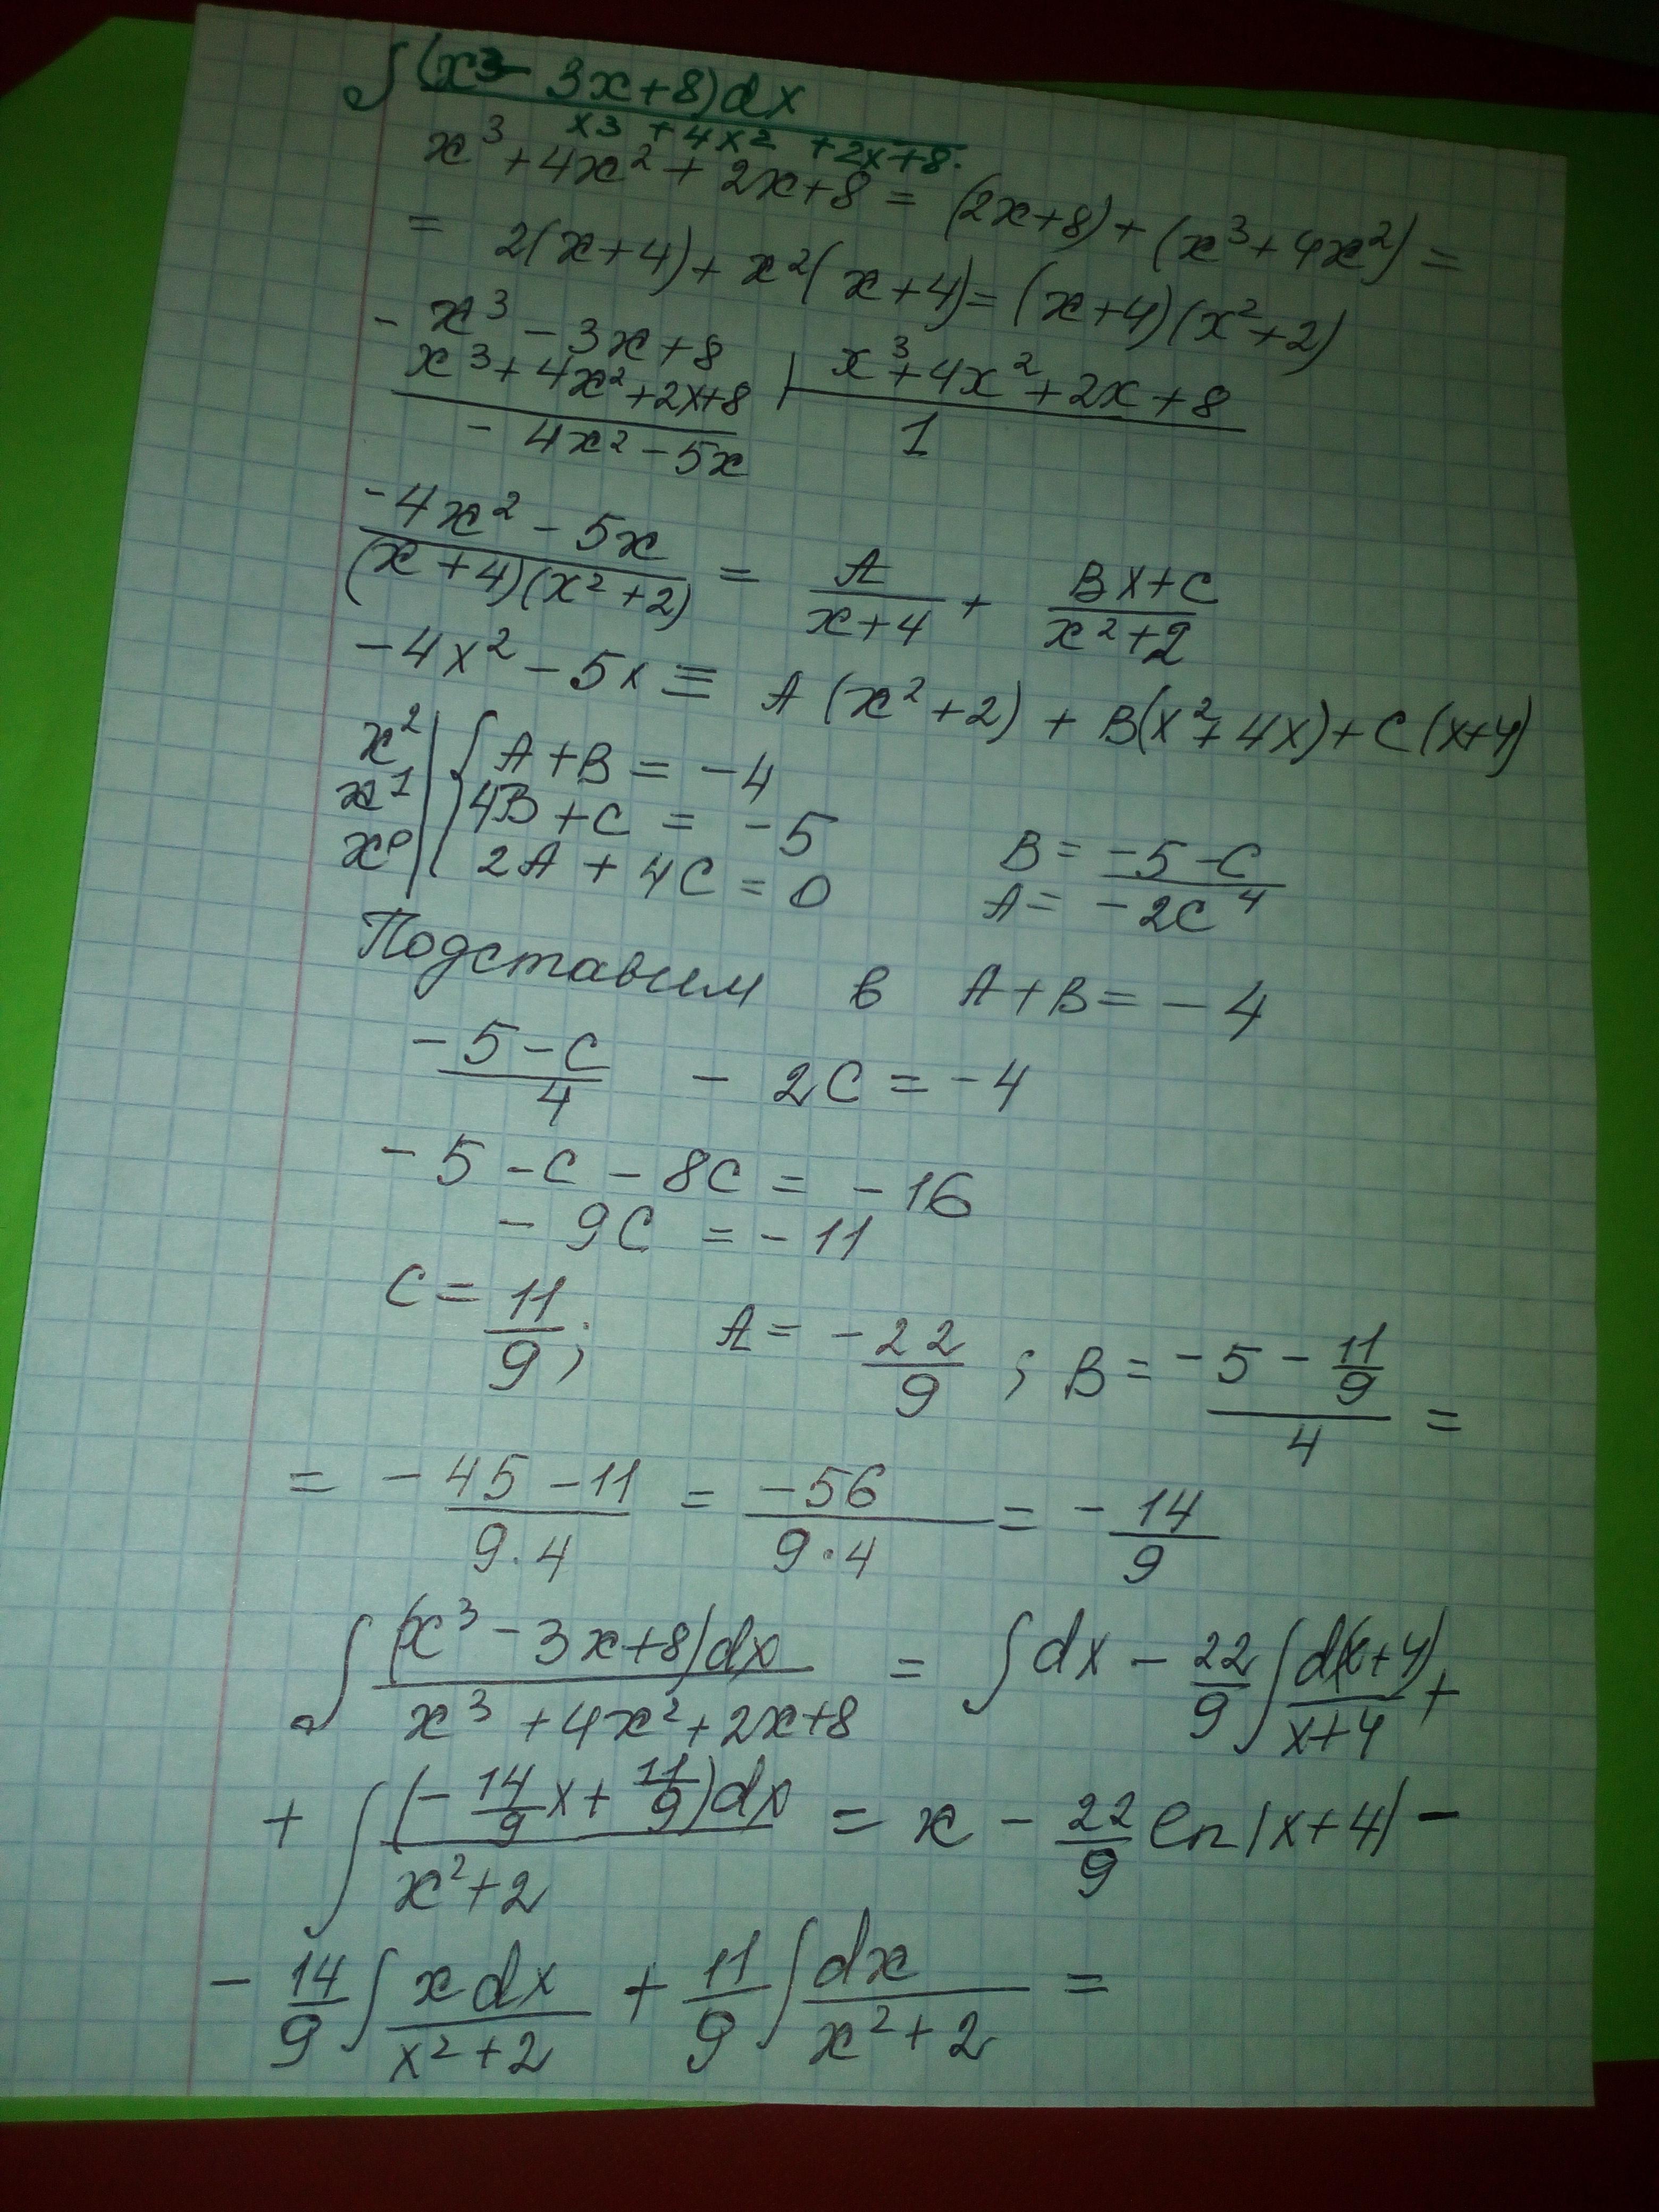 ∫ (x³ - 3x+8)dx / x³ + 4x² + 2x+8.
x³ + 4x² + 2x+8 = (2x+8) + (x³ + 4x²) =
= 2(x+4) + x²(x+4) = (x+4)(x²+2)
- x³ - 3x+8
x³ + 4x² + 2x+8 | x³ + 4x² + 2x + 8
- 4x² - 5x 1
-4x² - 5x / (x+4)(x²+2) = A / x+4 + Bx+C / x²+2
-4x² - 5x ≡ A(x²+2) + B(x²+4x) + C(x+4)
x² | { A+B = -4
x¹ | { 4B+C = -5 B = -5-C / 4
x⁰ | { 2A + 4C = 0 A = -2C
Подставим в A+B = -4
-5-C / 4 - 2C = -4
-5 - C - 8C = -16
- 9C = -11
C = 11/9; A = -22/9; B = -5 - 11/9 / 4 =
= -45-11 / 9·4 = -56 / 9·4 = -14/9
∫ (x³ - 3x+8)dx / x³ + 4x² + 2x+8 = ∫dx - 22/9 ∫ d(x+4) / x+4 +
+ ∫ (-14/9 x + 11/9)dx / x²+2 = x - 22/9 ln|x+4| -
- 14/9 ∫ x dx / x²+2 + 11/9 ∫ dx / x²+2 =